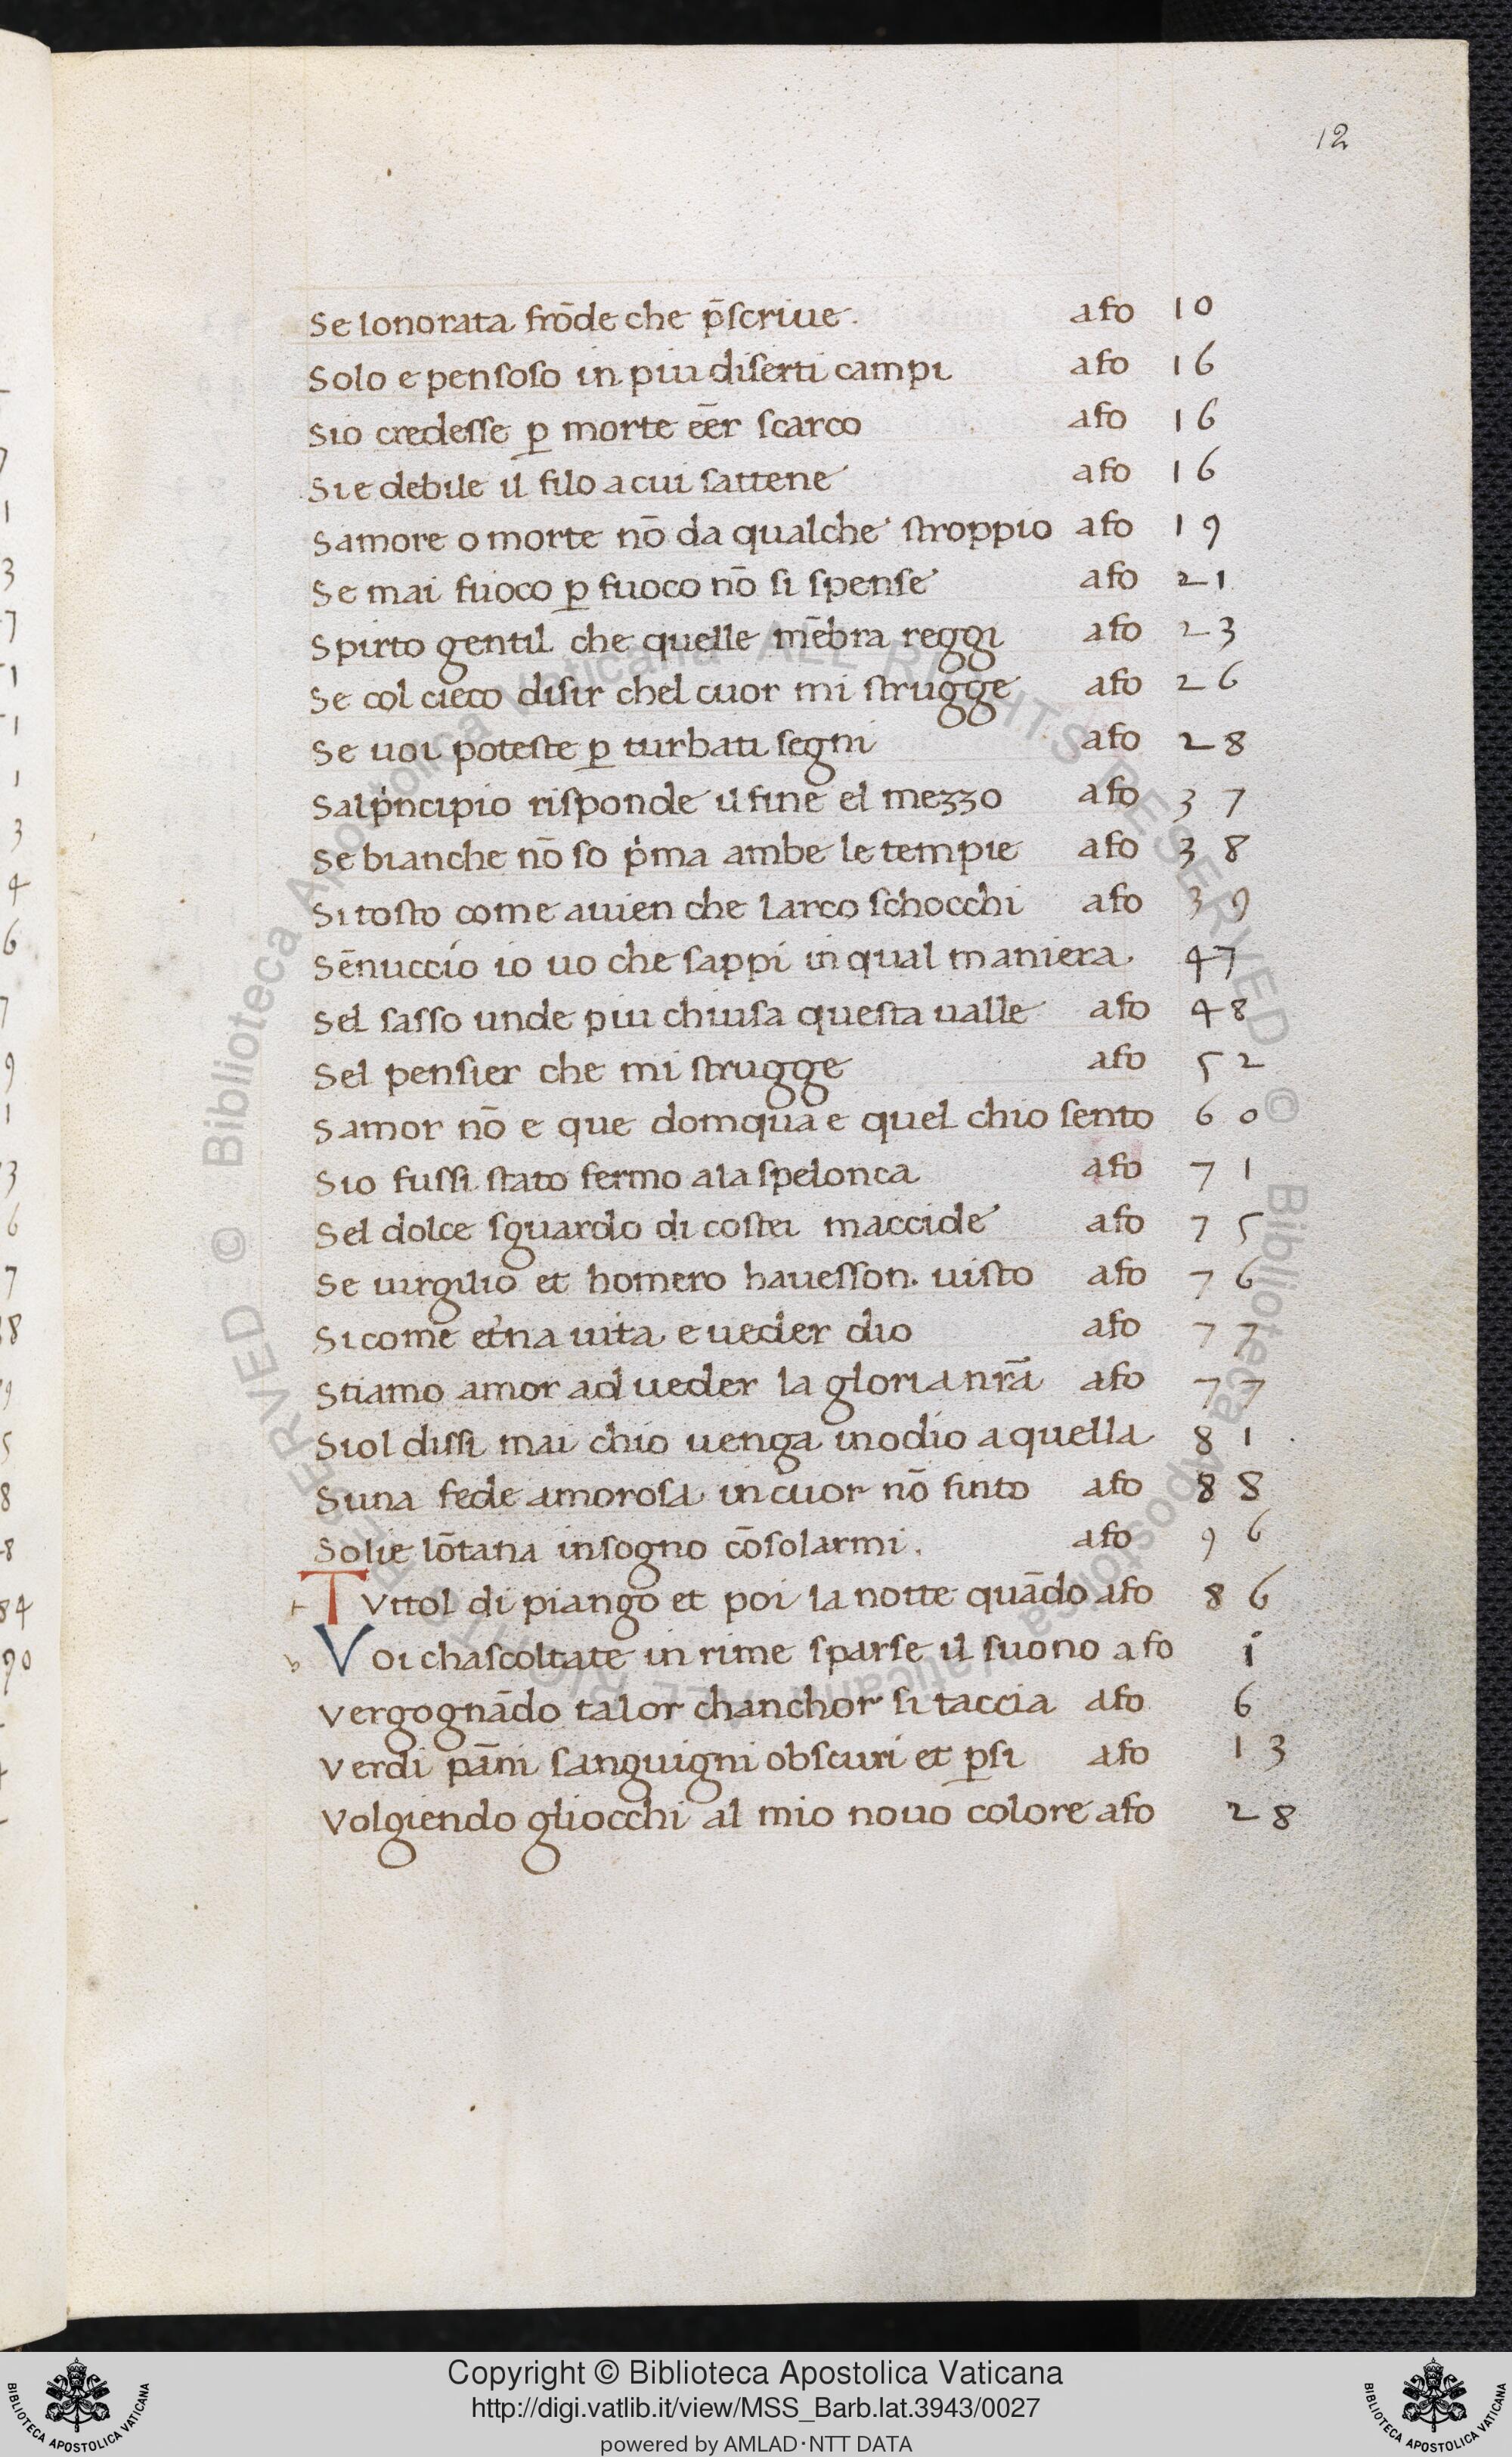 12
Se lonorata frōde che p̄scriue. afo 10
Solo e pensoso in piu diserti campi afo 16
Sio credesse ꝑ morte eēr scarco afo 16
Si e debile il filo a cui sattene afo 16
Samore o morte nō da qualche stroppio afo 19
Se mai fuoco ꝑ fuoco nō si spense afo 21
Spirto gentil che quelle mēbra reggi afo 23
Se col cieco disir chel cuor mi strugge afo 26
Se uoi poteste ꝑ turbati segni afo 28
Salpͥncipio risponde il fine el mezzo afo 37
Se bianche nō so pͥma ambe le tempie afo 38
Si tosto come auien che larco schocchi afo 39
Sēnuccio io uo che sappi in qual maniera. 47
Sel sasso unde piu chiusa questa ualle afo 48
Sel pensier che mi strugge afo 52
Samor nō e que domqua e quel chio sento 60
Sio fussi stato fermo a la spelonca afo 71
Sel dolce sguardo di costei maccide afo 75
Se uirgilio et homero hauesson. uisto afo 76
Si come et̓na uita e ueder dio afo 77
Stiamo amor ad ueder la gloria nr̄a afo 77
Siol dissi mai chio uenga inodio a quella 81.
Suna fede amorosa in cuor nō finto afo 88
Solie lōtana insogno cōsolarmi. afo 96
t TVttol di piango et poi la notte quādo afo 86
v Voi chascoltate in rime sparse il suono afo i
Vergognādo talor chanchor si taccia afo 6
Verdi pāni sanguigni obscuri et ꝑsi afo 13
Volgiendo gliocchi al mio nouo colore afo 28
7
1
3
7
1
1
1
3
4
6
7
9
1
3
6
7
8
9
5
8
8
84
90
© Biblioteca Apostolica Vaticana ALL RIGHTS RESERVED © Biblioteca Apostolica Vaticana ALL RIGHTS RESERVED
Copyright © Biblioteca Apostolica Vaticana
http://digi.vatlib.it/view/MSS_Barb.lat.3943/0027
powered by AMLAD·NTT DATA
BIBLIOTECA APOSTOLICA VATICANA
BIBLIOTECA APOSTOLICA VATICANA